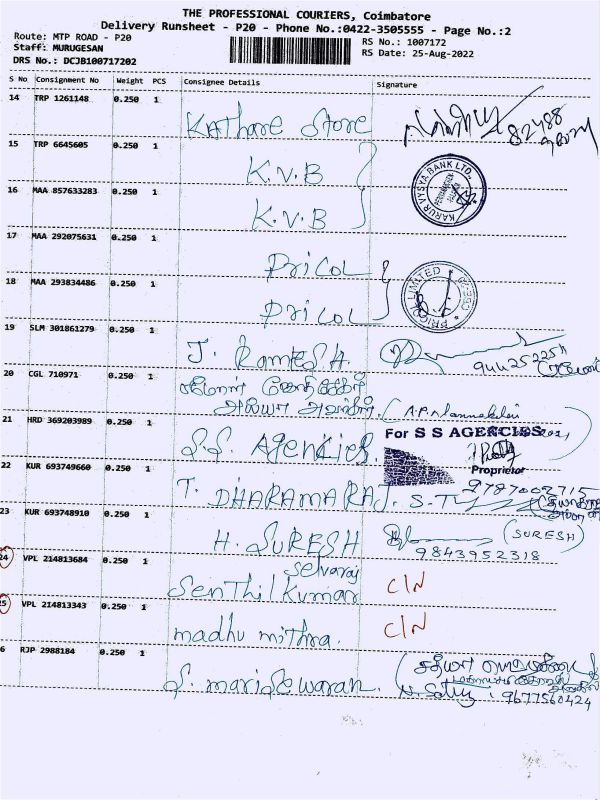 THE PROFESSIONAL COURIERS, Coimbatore
Delivery Runsheet - P20 - Phone No.:0422-3505555 - Page No.:2
Route: MTP ROAD - P20
Staff: MURUGESAN
DRS No.: DCJB100717202
RS No.: 1007172
RS Date: 25-Aug-2022
S No Consignment No Weight PCS Consignee Details Signature
14 TRP 1261148 0.250 1 Kathare Store 82488
15 TRP 6645605 0.250 1 K.V.B
KARUR VYSYA BANK LTD.
16 MAA 857633283 0.250 1 K.V.B
17 MAA 292075631 0.250 1 Pricol
PRICOL LIMITED
18 MAA 293834486 0.250 1 Pricol
19 SLM 301861279 0.250 1 J. Ramesh.
20 CGL 710971 0.250 1
21 HRD 369203989 0.250 1 S.S. Agencies.
For S S AGENCIES
Proprietor
22 KUR 693749660 0.250 1 T. DHARAMARAJ.
9787002715
23 KUR 693748910 0.250 1 H. SURESH (SURESH)
9843952318
24 VPL 214813684 0.250 1 Senthil kumar Selvaraj C/N
25 VPL 214813343 0.250 1 madhu mithra. C/N
6 RJP 2988184 0.250 1 S. mariSewaran.
9677560424